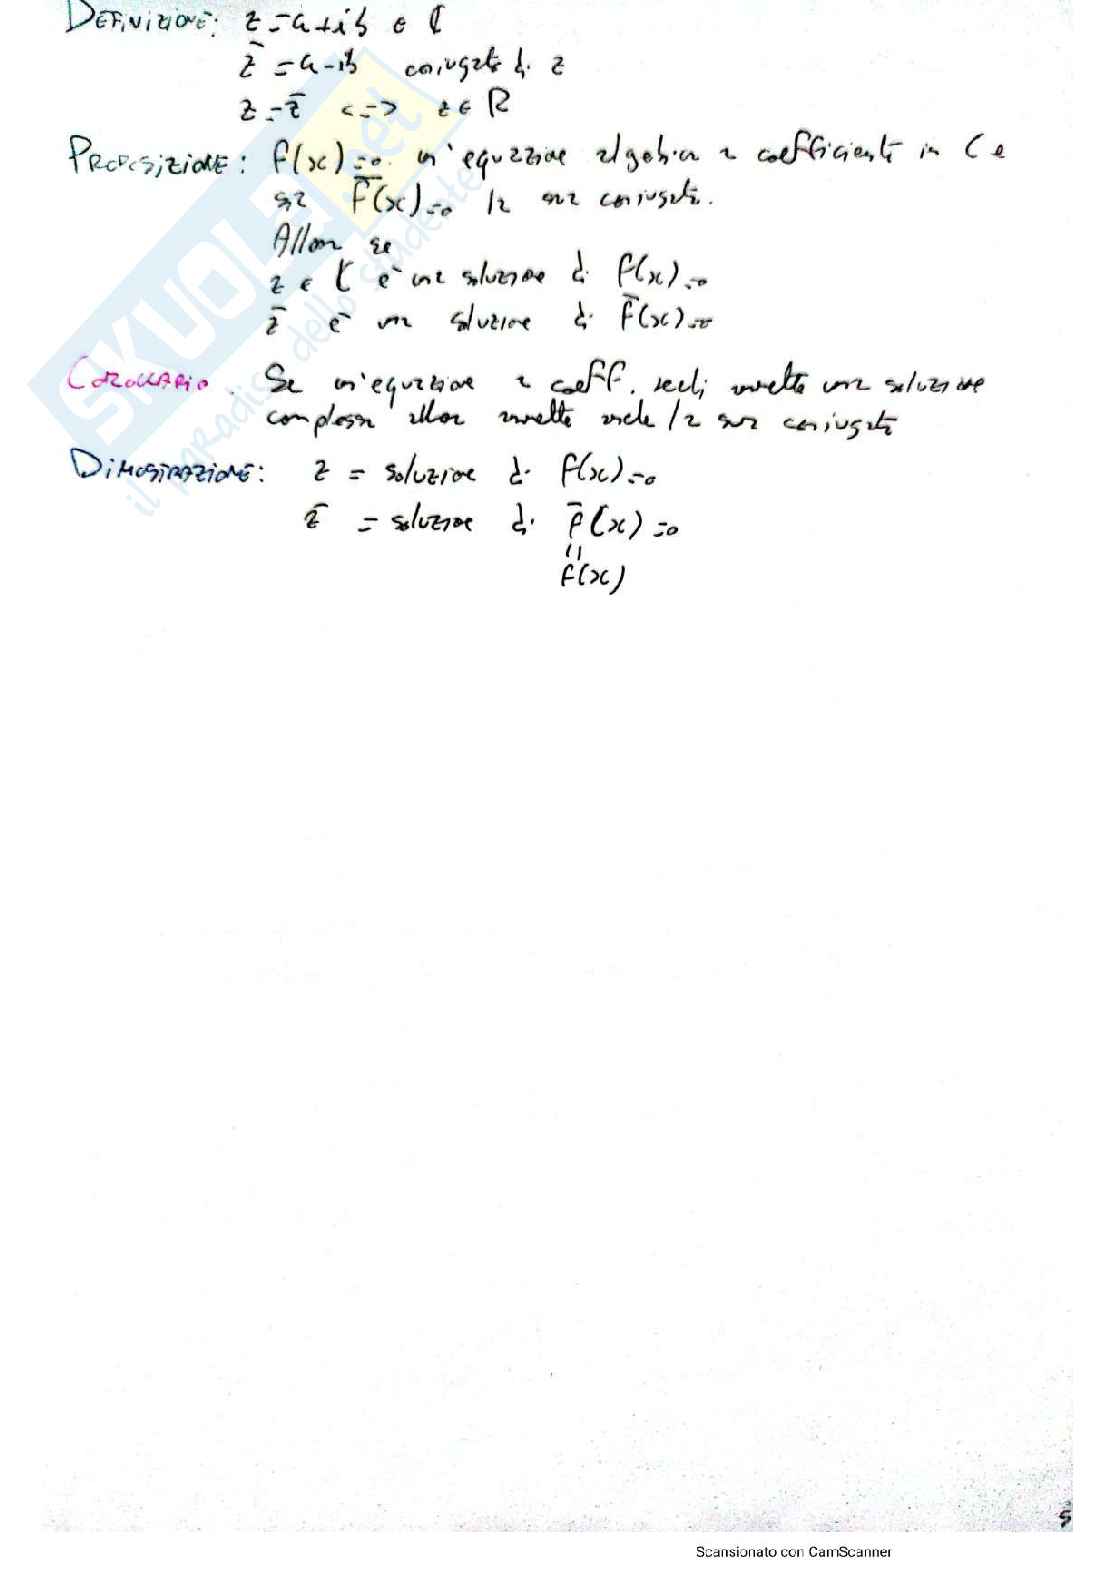 DEFINIZIONE: z = a + ib ∈ ℂ
z̄ = a - ib coniugato di z
z = z̄ <=> z ∈ ℝ
PROPOSIZIONE: f(x)=0 un'equazione algebrica a coefficienti in ℂ e
sia f̄(x)=0 la sua coniugata.
Allora se
z ∈ ℂ è una soluzione di f(x)=0
z̄ è una soluzione di f̄(x)=0
COROLLARIO. Se un'equazione a coeff. reali ammette una soluzione
complessa allora ammette anche la sua coniugata
DIMOSTRAZIONE: z = soluzione di f(x)=0
z̄ = soluzione di f̄(x)=0
||
f(x)
SKUOLA.net
il paradiso dello studente
5
Scansionato con CamScanner